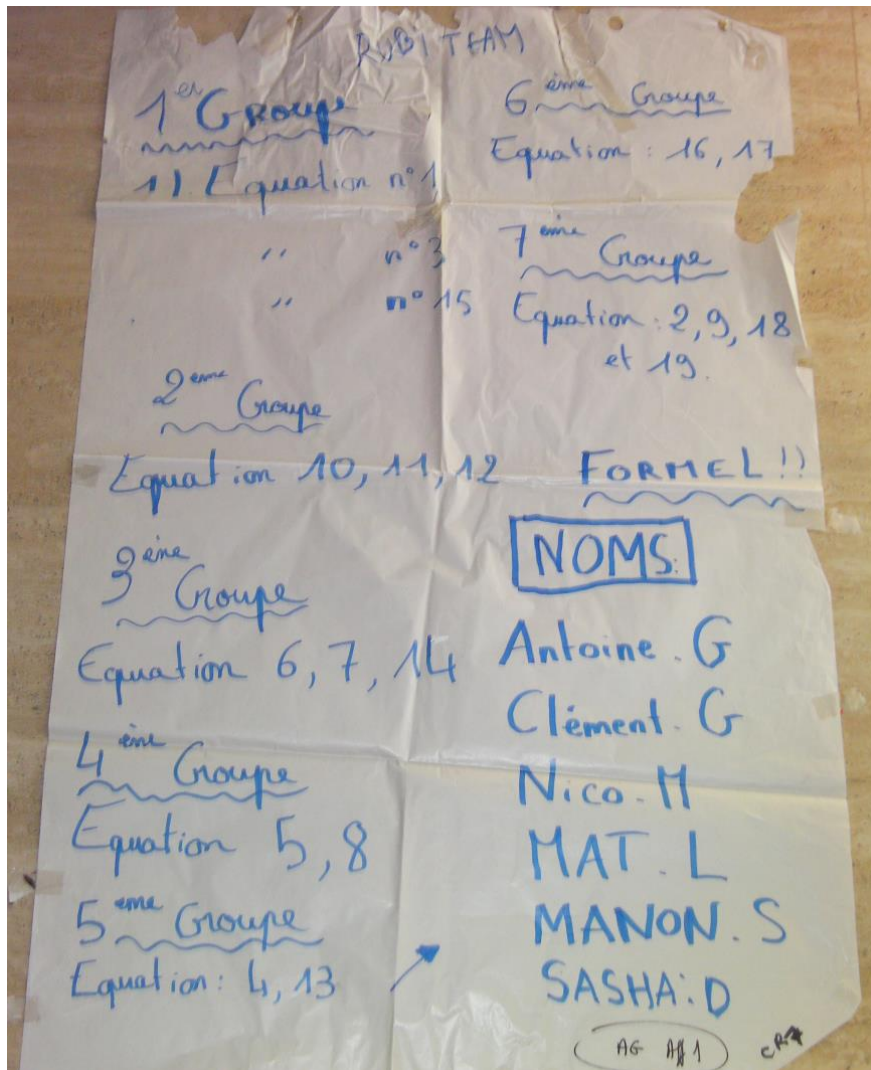 RUBI TEAM
1er Groupe
1) Equation n° 1
" n° 3
" n° 15
2eme Groupe
Equation 10, 11, 12
3ème Groupe
Equation 6, 7, 14
4ème Groupe
Equation 5, 8
5eme Groupe
Equation : 4, 13
6ème Groupe
Equation : 16, 17
7ème Groupe
Equation : 2, 9, 18
et 19.
FORMEL !!
NOMS:
Antoine . G
Clément . G
Nico . M
MAT . L
MANON . S
SASHA : D
AG 1
CR7